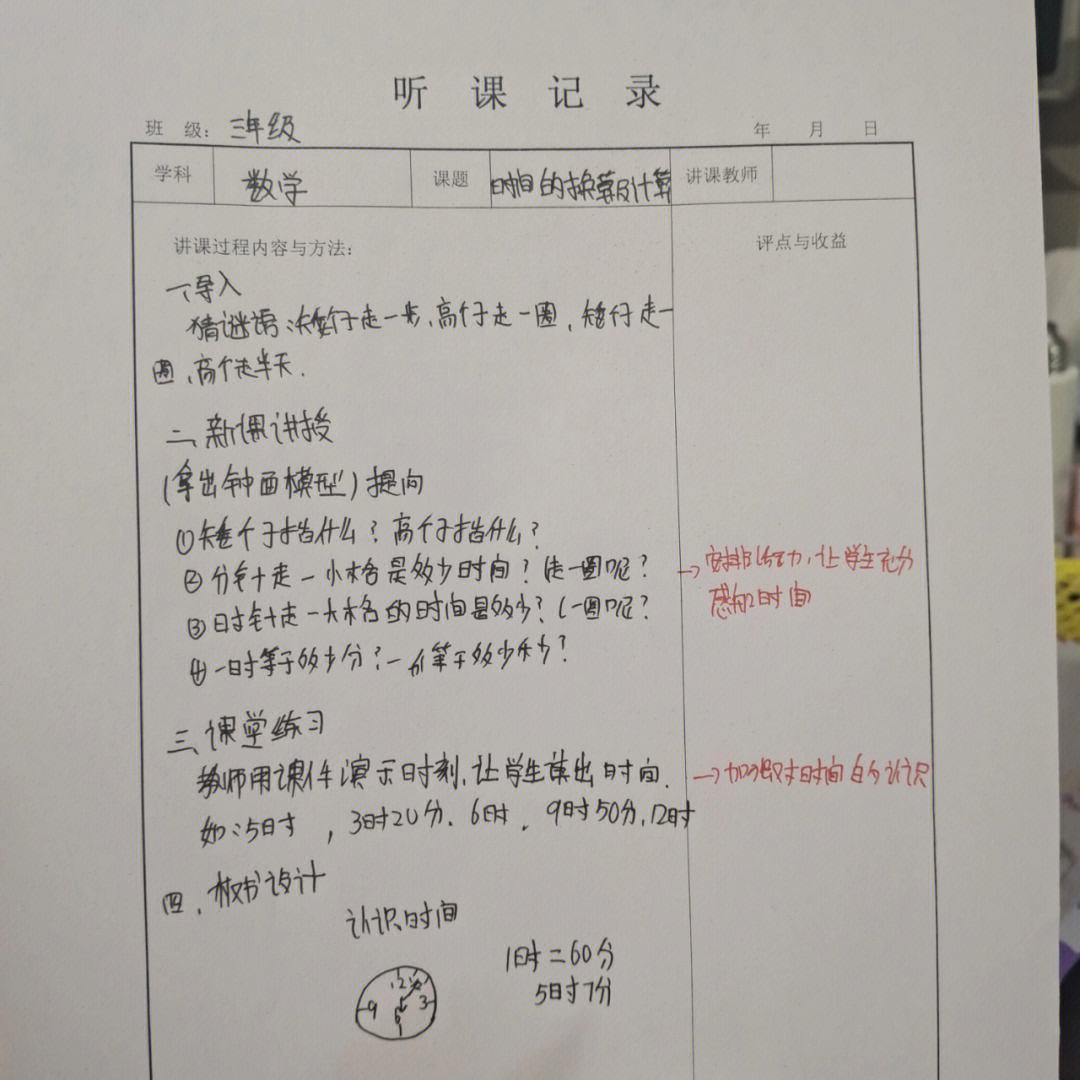 听课记录
班 级: 三年级 年 月 日
学科 数学 课题 时间的换算及计算 讲课教师
讲课过程内容与方法: 评点与收益
一、导入
猜谜语:矮个子走一步、高个子走一圈,矮个子走一
圈、高个走半天.
二、新课讲授
(拿出钟面模型)提问
①矮个子指什么?高个子指什么?
②分针走一小格是多少时间?走一圈呢?
→安排活动,让学生充分
感知时间
③时针走一大格的时间是多少?(一圈呢?
④一时等于多少分?一分等于多少秒?
三、课堂练习
教师用课件演示时刻,让学生读出时间.
→加深对时间的认识
如:5时,3时20分、6时、9时50分,12时
四、板书设计
认识时间
1时=60分
5时7分
12
9 3
6